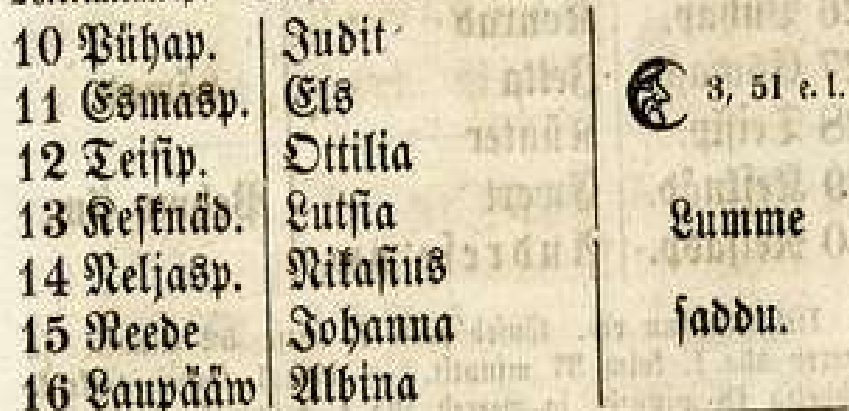 10 Pühap. Judit
11 Esmasp. Els 3, 51 e. l.
12 Teisip. Ottilia
13 Kesknäd. Lutsia Lumme
14 Neljasp. Nikasius
15 Reede Johanna saddu.
16 Laupääw Albina